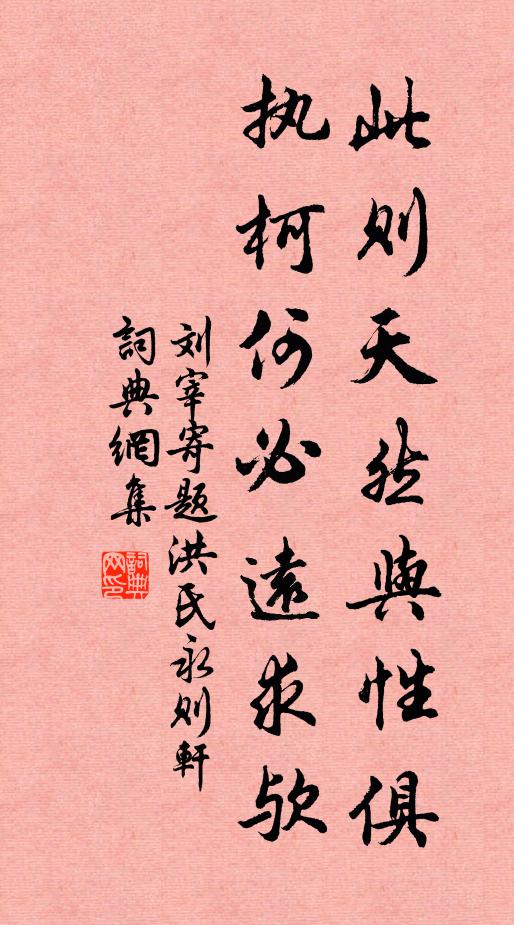 此则天然與性俱
执柯何必遠求欤
刘宰寄题洪氏永则軒
詞典網集
詞典網印